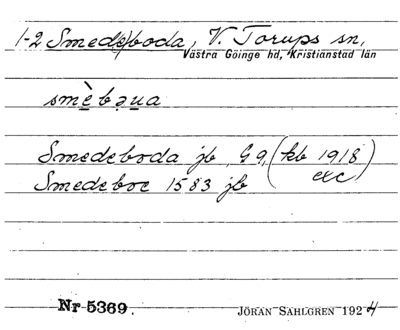 1-2 Smede(s)boda, V. Torups sn,
Västra Göinge hd, Kristianstad län
smèbəua
Smedeboda jb, G 9, (kb 1918 exc.)
Smedeboe 1583 jb
Nr 5369.
JÖRAN SAHLGREN 1924